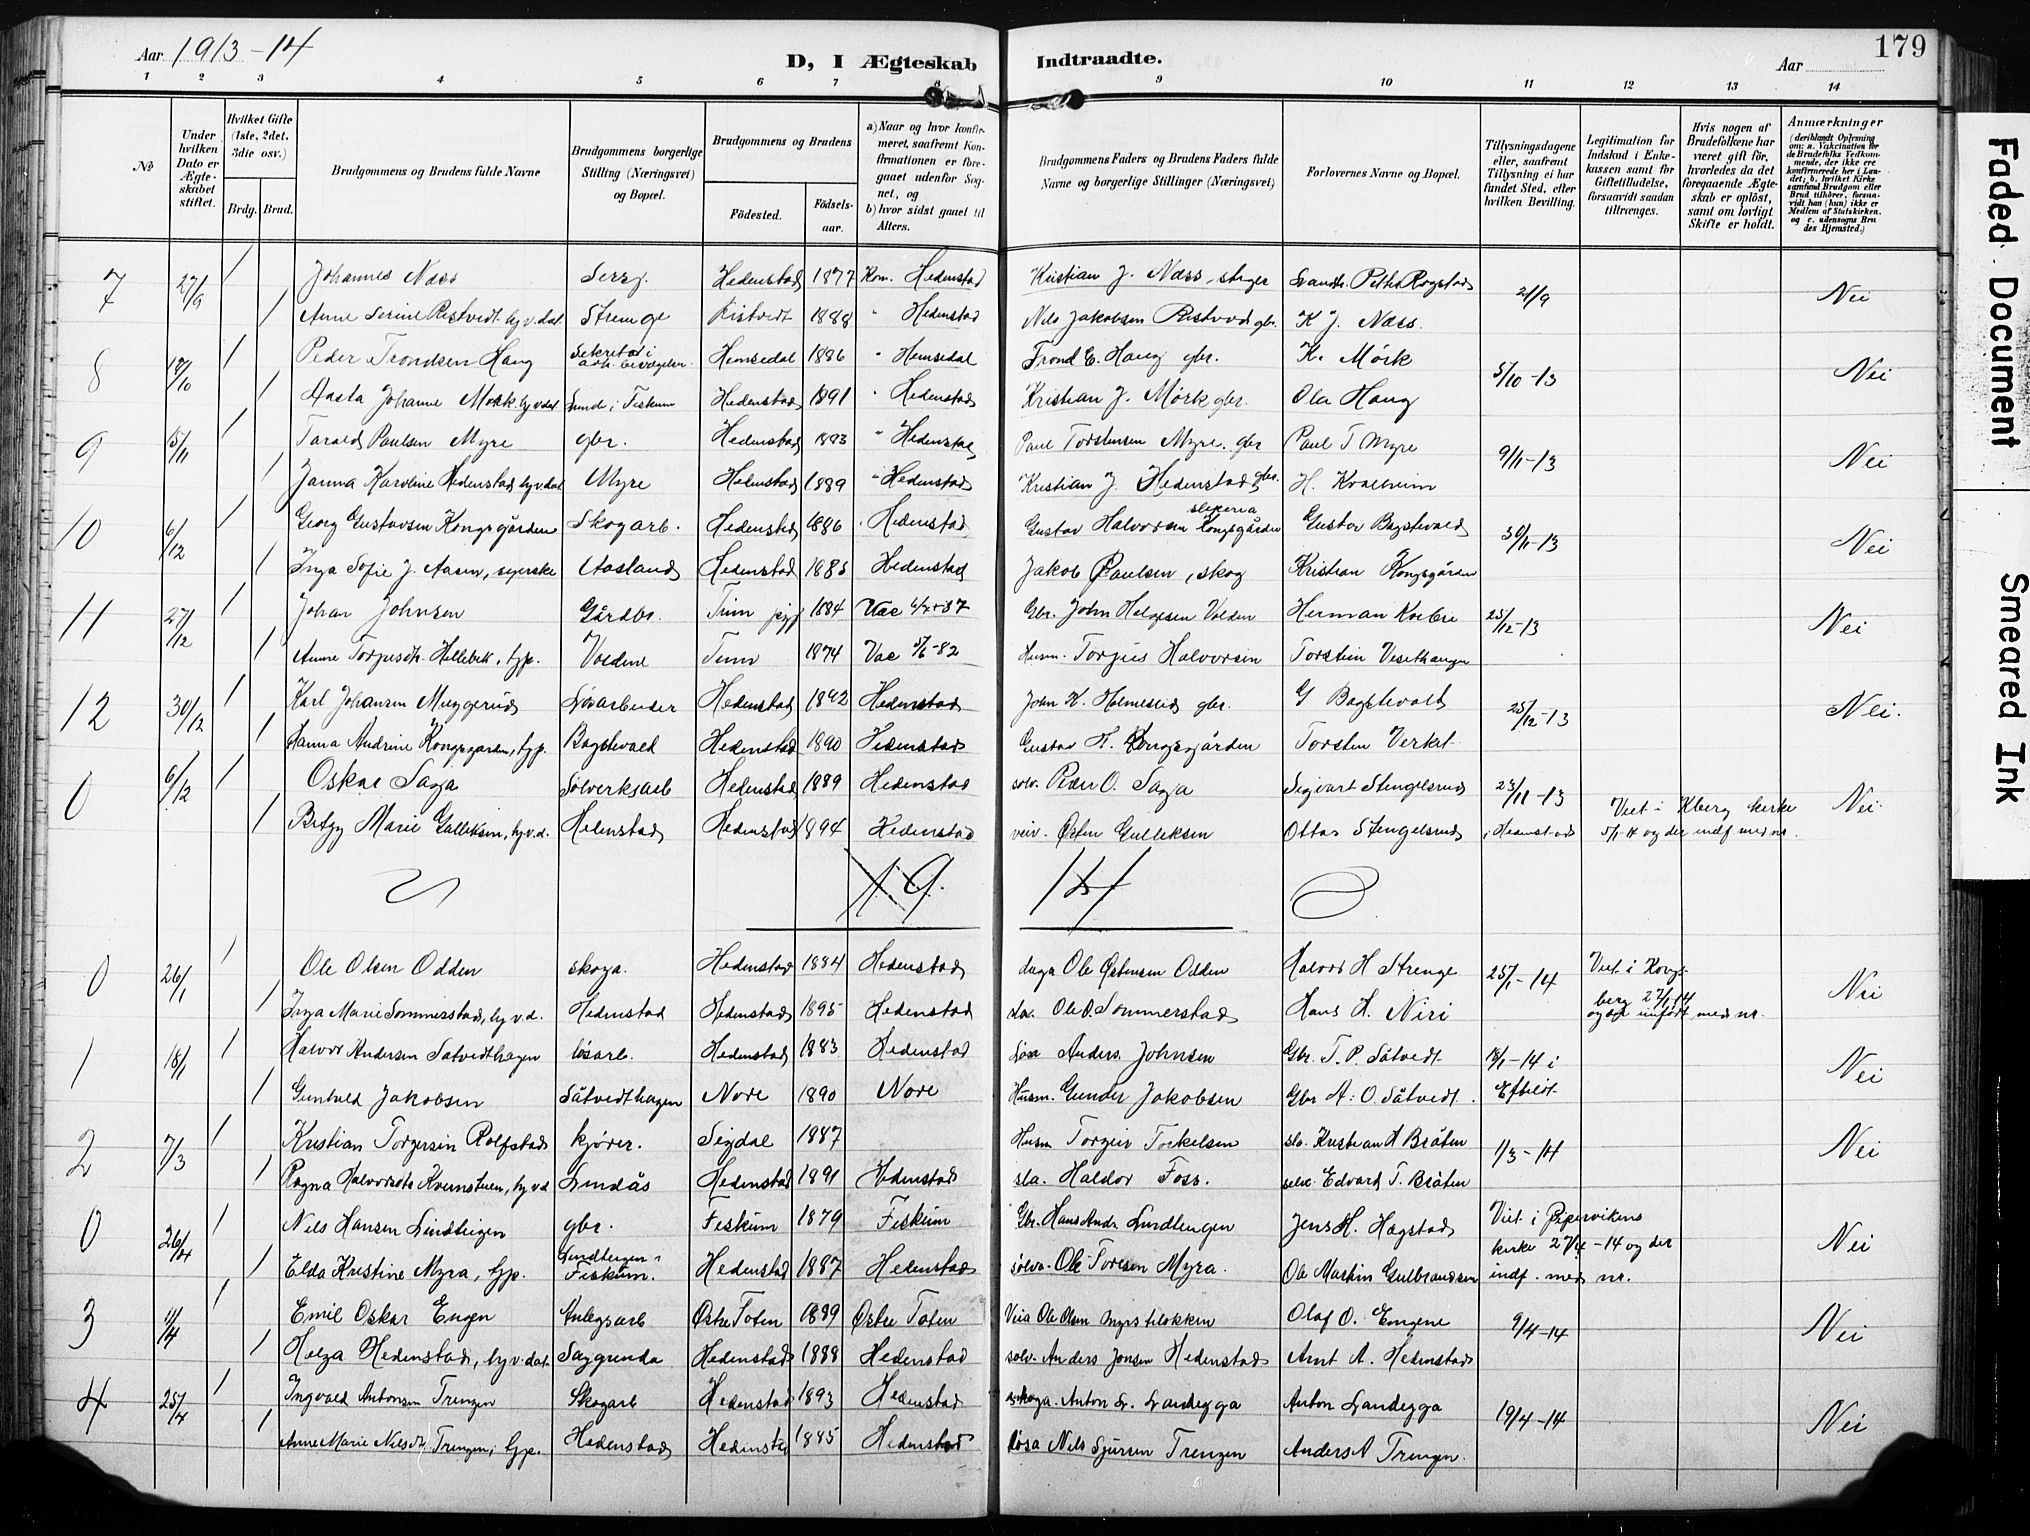 Aar 1913-14
D, I Ægteskab Indtraadte.
179
Aar
1 2 3 4 5 6 7 8 9 10 11 12 13 14
No
Under hvilken Dato er Ægteskabet stiftet.
Hvilket Gifte (1ste, 2det, 3die osv.)
Brdg. Brud.
Brudgommens og Brudens fulde Navne
Brudgommens borgerlige Stilling (Næringsvei) og Bopæl.
Brudgommens og Brudens
Födested.
Födsels-aar.
a) Naar og hvor konfirmeret, saafremt Konfirmationen er foregaaet udenfor Sognet, og
b) hvor sidst gaaet til Alters.
Brudgommens Faders og Brudens Faders fulde Navne og borgerlige Stillinger (Næringsvei)
Forlovernes Navne og Bopæl.
Tillysningsdagene eller, saafremt Tillysning ei har fundet Sted, efter hvilken Bevilling.
Legitimation for Indskud i Enkekassen samt for Giftetilladelse, forsaavidt saadan tiltrænges.
Hvis nogen af Brudefolkene har været gift før, hvorledes da det foregaaende Ægteskab er opløst, samt om lovligt Skifte er holdt.
Anmærkninger
(deriblandt Oplysning om: a. Vakcination for de Brudefolks Vedkommende, der ikke ere konfirmerede her i Landet; b. hvilket Kirkesamfund Brudgom eller Brud tilhører, forsaavidt han (hun) ikke er Medlem af Statskirken, og c. udensogns Brudes Hjemsted.)
7 27/9 1 Johannes Næss Hedenstad 1877 Kon. Hedenstad Kristian J. Næss, Peter Rogstad 21/9 Nei
1 Anne Serine Ristvedt hv.dat Strenge Ristvedt 1888 " Hedenstad Nils Jakobsen Ristvedt gbr. K J. Næss.
8 12/10 1 Peder Trondsen Haug Sekretær i arb. bevægelsen Hemsedal 1886 " Hemsedal Trond E. Haug gbr. K. Mörk 5/10-13 Nei
1 Aasta Johanne Mörk hv.dat Lunde i Fiskum Hedenstad 1891 " Hedenstad Kristian J. Mörk gbr. Ola Haug
9 15/11 1 Tarald Paulsen Myre gbr. Hedenstad 1893 " Hedenstad Paul Torstensen Myre gbr Paul T Myre 9/11-13 Nei
1 Janna Karoline Hedenstad hv.dat Myre Hedenstad 1889 " Hedenstad Kristian J. Hedenstad gbr. H. Kvalheim
10 6/12 1 Georg Gustavsen Kongsgården Skogarb. Hedenstad 1886 Hedenstad Gustav Halvorsen Kongsgården Gustav Bagstevold 30/11-13 Nei
1 Inga Sofie J. Aasen, syerske Aasland Hedenstad 1885 Hedenstad Jakob Paulsen, skog Kristian Kongsgården
11 27/12 1 Johan Johnsen Gårdbr. Tinn 1884 Vac Gbr. John Helgesen Volden Herman 25/12-13 Nei
1 Anne Torjusdt. Hellebek, tjp. Voldene Tinn 1874 Vac 5/6-82 Husm. Torjus Halvorsen Torstein Vesethaugen
12 30/12 1 Karl Johansen Muggerud Lösarbeider Hedenstad 1892 Hedenstad John K. gbr. G Bagstevold 25/12-13 Nei.
1 Hanna Andrine Kongsgården, tjp. Bagstevold Hedenstad 1890 Hedenstad Gustav H. Kongsgården Torsten Verket
0 6/12 1 Oskar Saga Sölverksarb Hedenstad 1889 Hedenstad sölv. Peder O. Saga Sigvart Stengelsrud 23/11-13 Nei
1 Betzy Marie Gulleksen, hv.d. Hedenstad Hedenstad 1894 Hedenstad veiv. Östen Gulleksen Ottar Stengelsrud i Hedenstad Viet i Kberg kirke 5/1 14 og der indf med nr.
19 14
0 26/1 1 Ole Olsen Odden skoga. Hedenstad 1884 Hedenstad daga Ole Östensen Odden Halvor H Strenge 25/1-14 Viet i Kongsberg 27/1 14 og der indført med nr. Nei
1 Inga Marie Sommerstad, hv.d. Hedenstad Hedenstad 1895 Hedenstad Ole O. Sommerstad Hans H. Niri
1 18/1 1 Halvor Andersen Såtvedthagen lösarb. Hedenstad 1883 Hedenstad Lösa Anders Johnsen Gbr. T. P. Såtvedt 18/1-14 i Nei
1 Gunhild Jakobsen Såtvedthagen Nore 1890 Nore Husm. Gunder Jakobsen Gbr A. O. Såtvedt. Efteløt
2 7/3 1 Kristian Torgersen Rolfstad kjører. Sigdal 1887 Husm Torger Torkelsen slv. Kristian A Bråten 1/3-14 Nei
1 Ragna Halvorsdt Kvernstuen, hv.d Lindås Hedenstad 1891 Hedenstad sla. Haldor Foss. Edvard T. Bråten
0 26/4 1 Nils Hansen Lindteigen gbr. Fiskum 1879 Fiskum Gbr. Hans Andr. Lindteigen Jens H. Hagstad Viet i Pipervikens Nei
1 Elda Kristine Myra, tjp. Lindteigen i Fiskum. Hedenstad 1887 Hedenstad sølva. Ole Toresen Myra. Ole Martin Gulbrandsen kirke 27/4-14 og der indf. med nr.
3 11/4 1 Emil Oskar Engen Anlegsarb Østre Toten 1889 Østre Toten Veia Ole Olsen Myrstilokken Olaf O. Engene 9/4-14 Nei
1 Helga Hedenstad, hv.dat. Saggrenda Hedenstad 1888 Hedenstad solv. Anders Jonsen Hedenstad Arnt A. Hedenstad
4 25/4 1 Ingvald Antonsen Trengen Skogarb Hedenstad 1893 Hedenstad skoga. Anton L. Landegga Anton Landegga 19/4-14 Nei
1 Anne Marie Nilsdt. Trengen, tjp. Hedenstad Hedenstad 1885 Hedenstad lösa Nils Sjursen Trengen Anders A Trengen.
Faded Document Smeared Ink